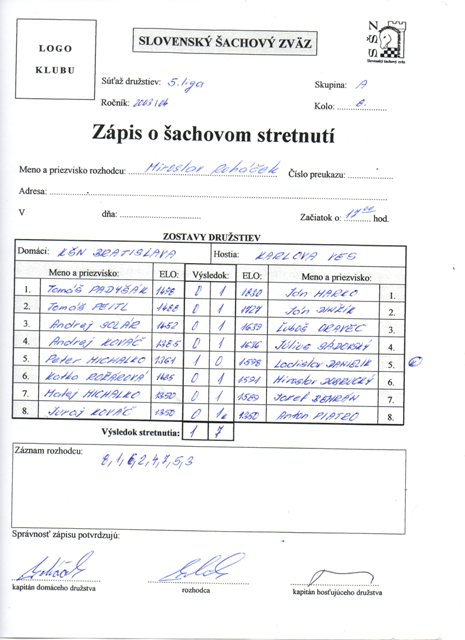 LOGO
KLUBU
SLOVENSKÝ ŠACHOVÝ ZVÄZ
Slovenský šachový zväz
Súťaž družstiev: 5. liga
Skupina: A
Ročník: 2003/04
Kolo: 8.
Zápis o šachovom stretnutí
Meno a priezvisko rozhodcu: Miroslav Číslo preukazu:
Adresa:
V dňa: Začiatok o: hod.
ZOSTAVY DRUŽSTIEV
Domáci: KŠN BRATISLAVA Hostia: KARLOVA VES
Meno a priezvisko: ELO: Výsledok: ELO: Meno a priezvisko:
1. Tomáš PADYŠÁK 0 1 1830 Ján MARKO 1.
2. Tomáš PEITL 1488 0 1 Ján 2.
3. Andrej SOLÁR 1452 0 1 1639 Ľuboš ORAVEC 3.
4. Andrej KOVÁČ 1385 0 1 1636 Július 4.
5. Peter MICHALKO 1361 1 0 1598 Ladislav DANIELIK 5.
6. Katka ROŽÁROVÁ 0 1 1591 Miroslav DOBRUCKÝ 6.
7. Matej MICHALKO 1350 0 1 1589 Jozef BEHRÁN 7.
8. Juraj KOVÁČ 1350 0 1k 1350 Anton PIATEO 8.
Výsledok stretnutia: 1 7
Záznam rozhodcu:
8,1,6,2,4,7,5,3
Správnosť zápisu potvrdzujú:
kapitán domáceho družstva rozhodca kapitán hosťujúceho družstva